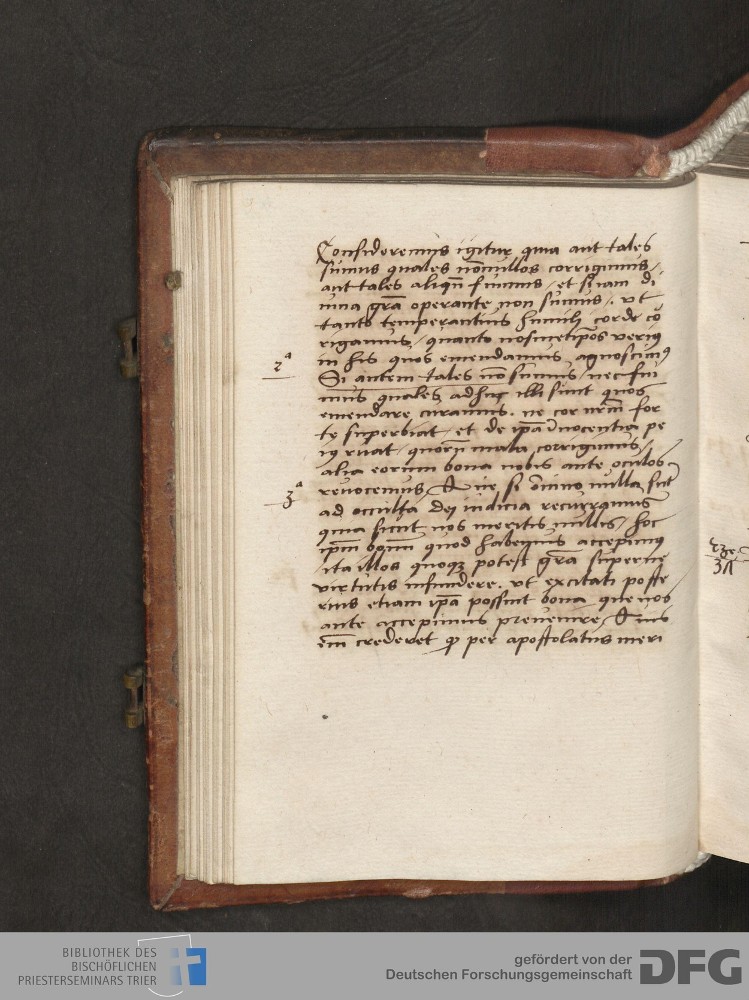 Consideremus igitur quia aut tales
sumus quales nōnullos corrigimus /
aut tales aliqñ fuimus / et si iam di
uina grā operante non sumus / vt
tanto temperantius humili corde cō
rigamus / quanto nosmetipōs verius
in his quos emendamus agnoscimus
2ᵃ
Si autem tales nō sumus / nec fui
mus quales adhuc illi sunt quos
emendare curamus . ne cor nr̄m for
te superbiat / et de ip̄a innocentia pe
ius ruat / quorū mala corrigimus /
alia eorum bona nobis ante oculos
reuocemus
3ᵃ
Que si oīno nulla sūt
ad occulta dei iudicia recurramus
quia sicut nos meritis nullis / hoc
ip̄m bonū quod habemus accepimus
ita illos quoqꝫ potest grā superne
virtutis infundere . vt excitati poste
rius etiam ip̄a possint bona que nos
ante accepimus preuenire / Quis
em̄ crederet ꝙ per apostolatus meri
BIBLIOTHEK DES
BISCHÖFLICHEN
PRIESTERSEMINARS TRIER
gefördert von der
Deutschen Forschungsgemeinschaft
DFG